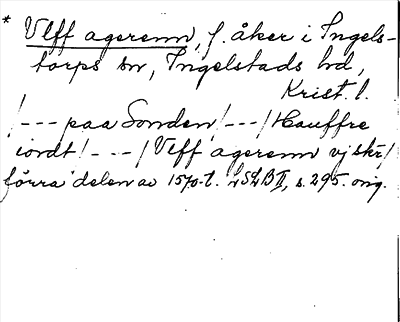 * Vlff agerenn, f. åker i Ingels-
torps sn, Ingelstads hd,
Krist. l.
/--- paa Sonden/---/Hauffre
iordt/---/Vlff agerenn vj skr/
förra delen av 1570-t. LSLB II, s. 295. orig.